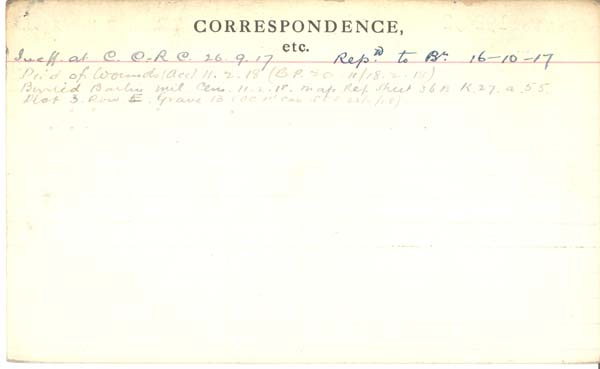 CORRESPONDENCE,
etc.
Ineff. at C. C.R.C. 26.9.17 Rep'd to Bn. 16-10-17
Died of Wounds (Acc) 11.2.18 (
Buried Barlin Mil Cem. 11.2.18. Map Ref. Sheet 36B K.27.a.5.5.
Plot 3. Row E. Grave